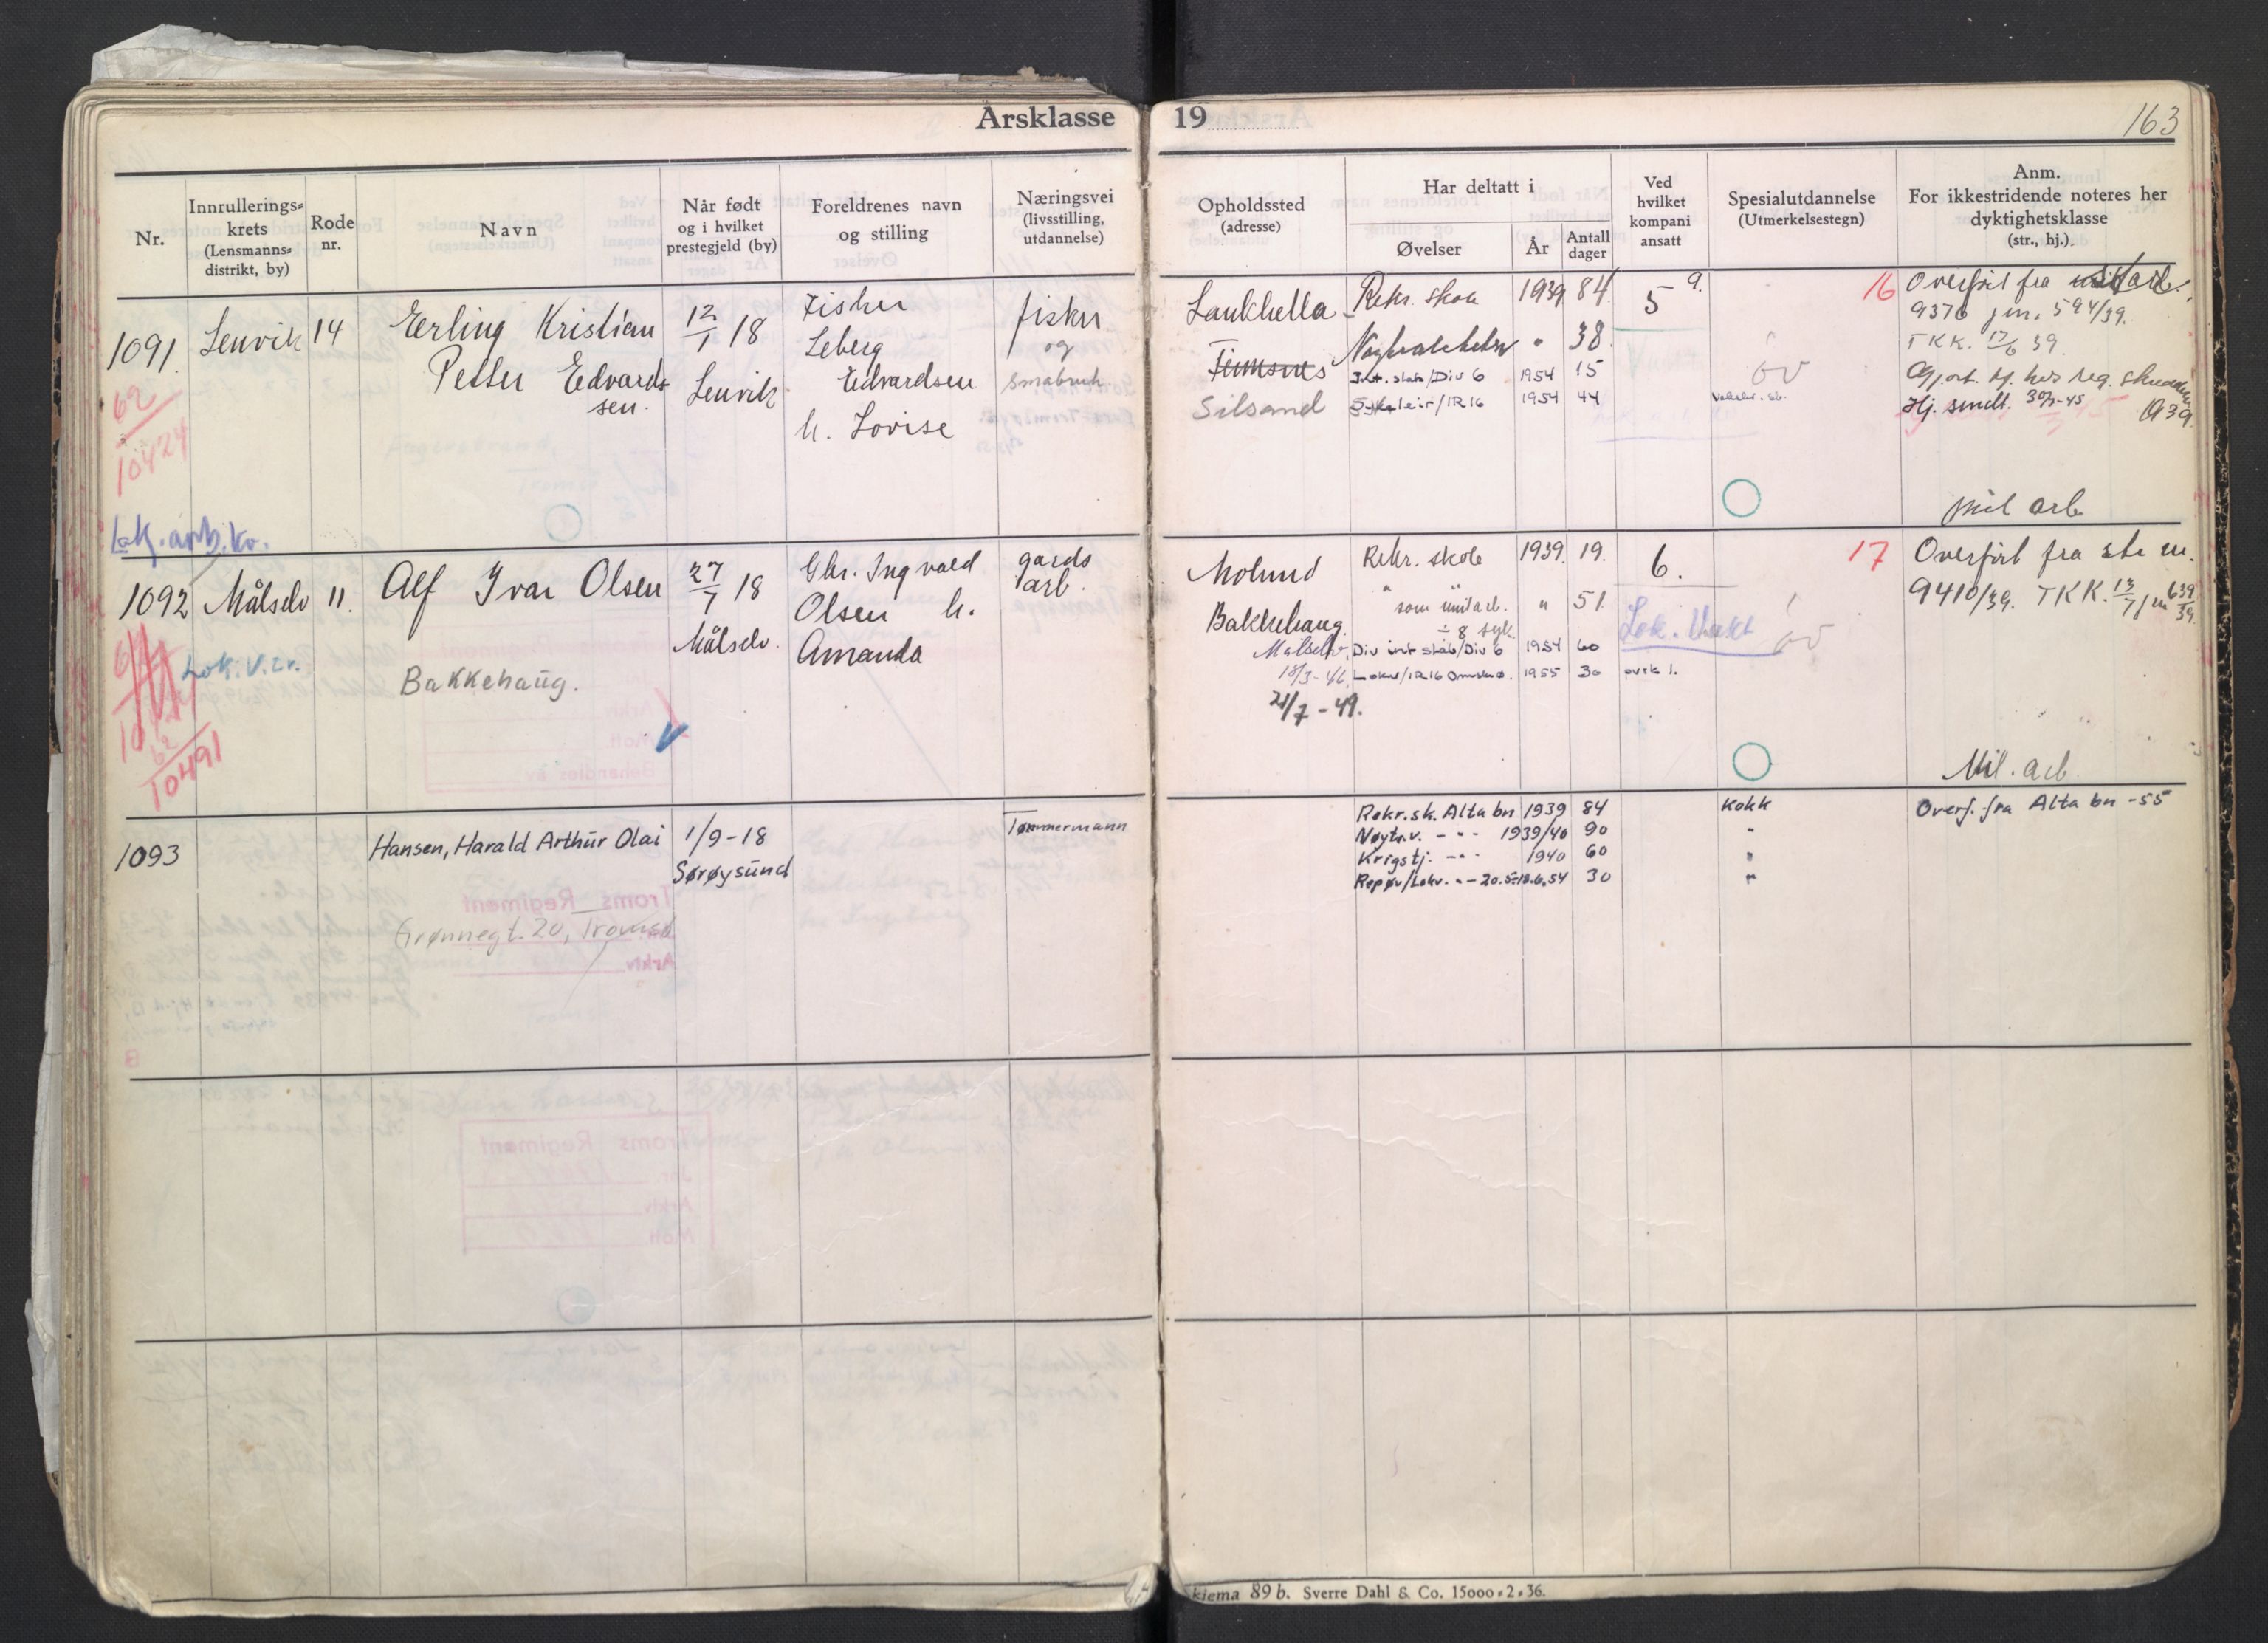 Årsklasse 19
163
Nr.
Innrullerings-
krets
(Lensmanns-
distrikt, by)
Rode
nr.
Navn
Når født
og i hvilket
prestegjeld (by)
Foreldrenes navn
og stilling
Næringsvei
(livsstilling,
utdannelse)
Opholdssted
(adresse)
Har deltatt i
Øvelser
År
Antall
dager
Ved
hvilket
kompani
ansatt
Spesialutdannelse
(Utmerkelsestegn)
Anm.
For ikkestridende noteres her
dyktighetsklasse
(str., hj.)
1091
62
10424
Lok. arb.ko.
Lenvik
14
Erling Kristian
Petter Edvard-
sen.
12/1 18
Lenvik
Fisker
Leberg
Edvardsen
h. Lovise
fisker
og
småbruk.
Laukhella
Finnsnes
Silsand
Rekr. skole 1939 84
" 38
Int. stab/Div 6 1954 15
/IR16 1954 44
5
9.
øv
16
Overført fra
9370 jnr. 594/39.
TKK. 17/6 39
Hj. sendt. 30/3-45
1939
mil arb
1092
Lok. v.
62
10491
Målselv
11.
Alf Ivar Olsen
Bakkehaug.
27/7 18
Målselv.
Chr. Ingvald
Olsen h.
Amanda
gards
arb.
Molund
Bakkehaug
Målselv,
18/3-46
21/7-49.
Rekr. skole 1939. 19.
" som " 51
÷ 8 syk
Div int stab/Div 6 1954 60
Lokv/IR16 1955 30
6.
Lok. Vakt
øv
17
Overført fra str m.
9410/39. TKK. 13/7 jn 639/39.
Mil. arb
1093
Hansen, Harald Arthur Olai
Grønnegt. 20, Tromsø
1/9-18
Sørøysund
Tømmermann
Rekr.sk. Alta bn 1939 84
Nøytr.v. - " - 1939/40 90
Krigstj. - " - 1940 60
Repøv/Lokv. - " - 20.5-18.6.54 30
Kokk
"
"
"
Overf. fra Alta bn -55
kjema 89 b. Sverre Dahl & Co. 15000-2-36.